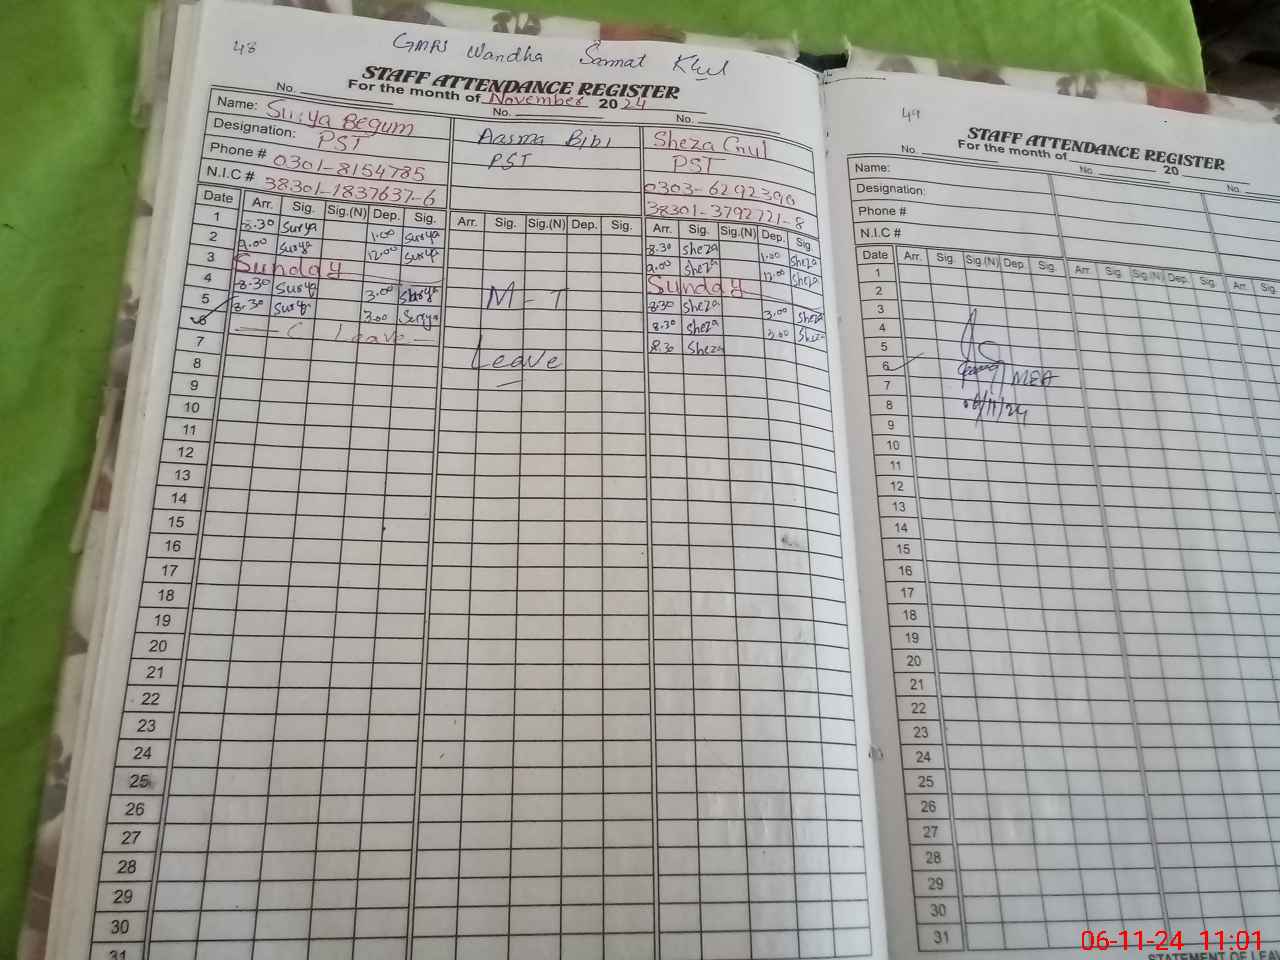 48
GMPS Wandha Sannat Khel
STAFF ATTENDANCE REGISTER
For the month of November 2024
No. No. No.
Name: Surya Begum Aasma Bibi Sheza Gul
Designation: PST PST PST
Phone # 0301-8154785 0303-6292390
N.I.C # 38301-1837637-6 38301-3792721-8
Date Arr. Sig. Sig.(N) Dep. Sig. Arr. Sig. Sig.(N) Dep. Sig. Arr. Sig. Sig.(N) Dep. Sig.
1 8.30 Surya 1.00 Surya 8.30 Sheza 1.00 Sheza
2 9.00 Surya 12.00 Surya 9.00 Sheza 12.00 Sheza
3 Sunday Sunday
4 8.30 Surya 3.00 Surya M-T 8.30 Sheza 3.00 Sheza
5 8.30 Surya 3.00 Surya 8.30 Sheza 3.00 Sheza
6 C Leave Leave 8.30 Sheza
7
8
9
10
11
12
13
14
15
16
17
18
19
20
21
22
23
24
25
26
27
28
29
30
31
49
STAFF ATTENDANCE REGISTER
For the month of 20
No. No. No.
Name:
Designation:
Phone #
N.I.C #
Date Arr. Sig. Sig.(N) Dep. Sig. Arr. Sig. Sig.(N) Dep. Sig. Arr. Sig.
1
2
3
4
5
6
7 MEA
8 06/11/24
9
10
11
12
13
14
15
16
17
18
19
20
21
22
23
24
25
26
27
28
29
30
31
STATEMENT OF LEAV
06-11-24 11:01